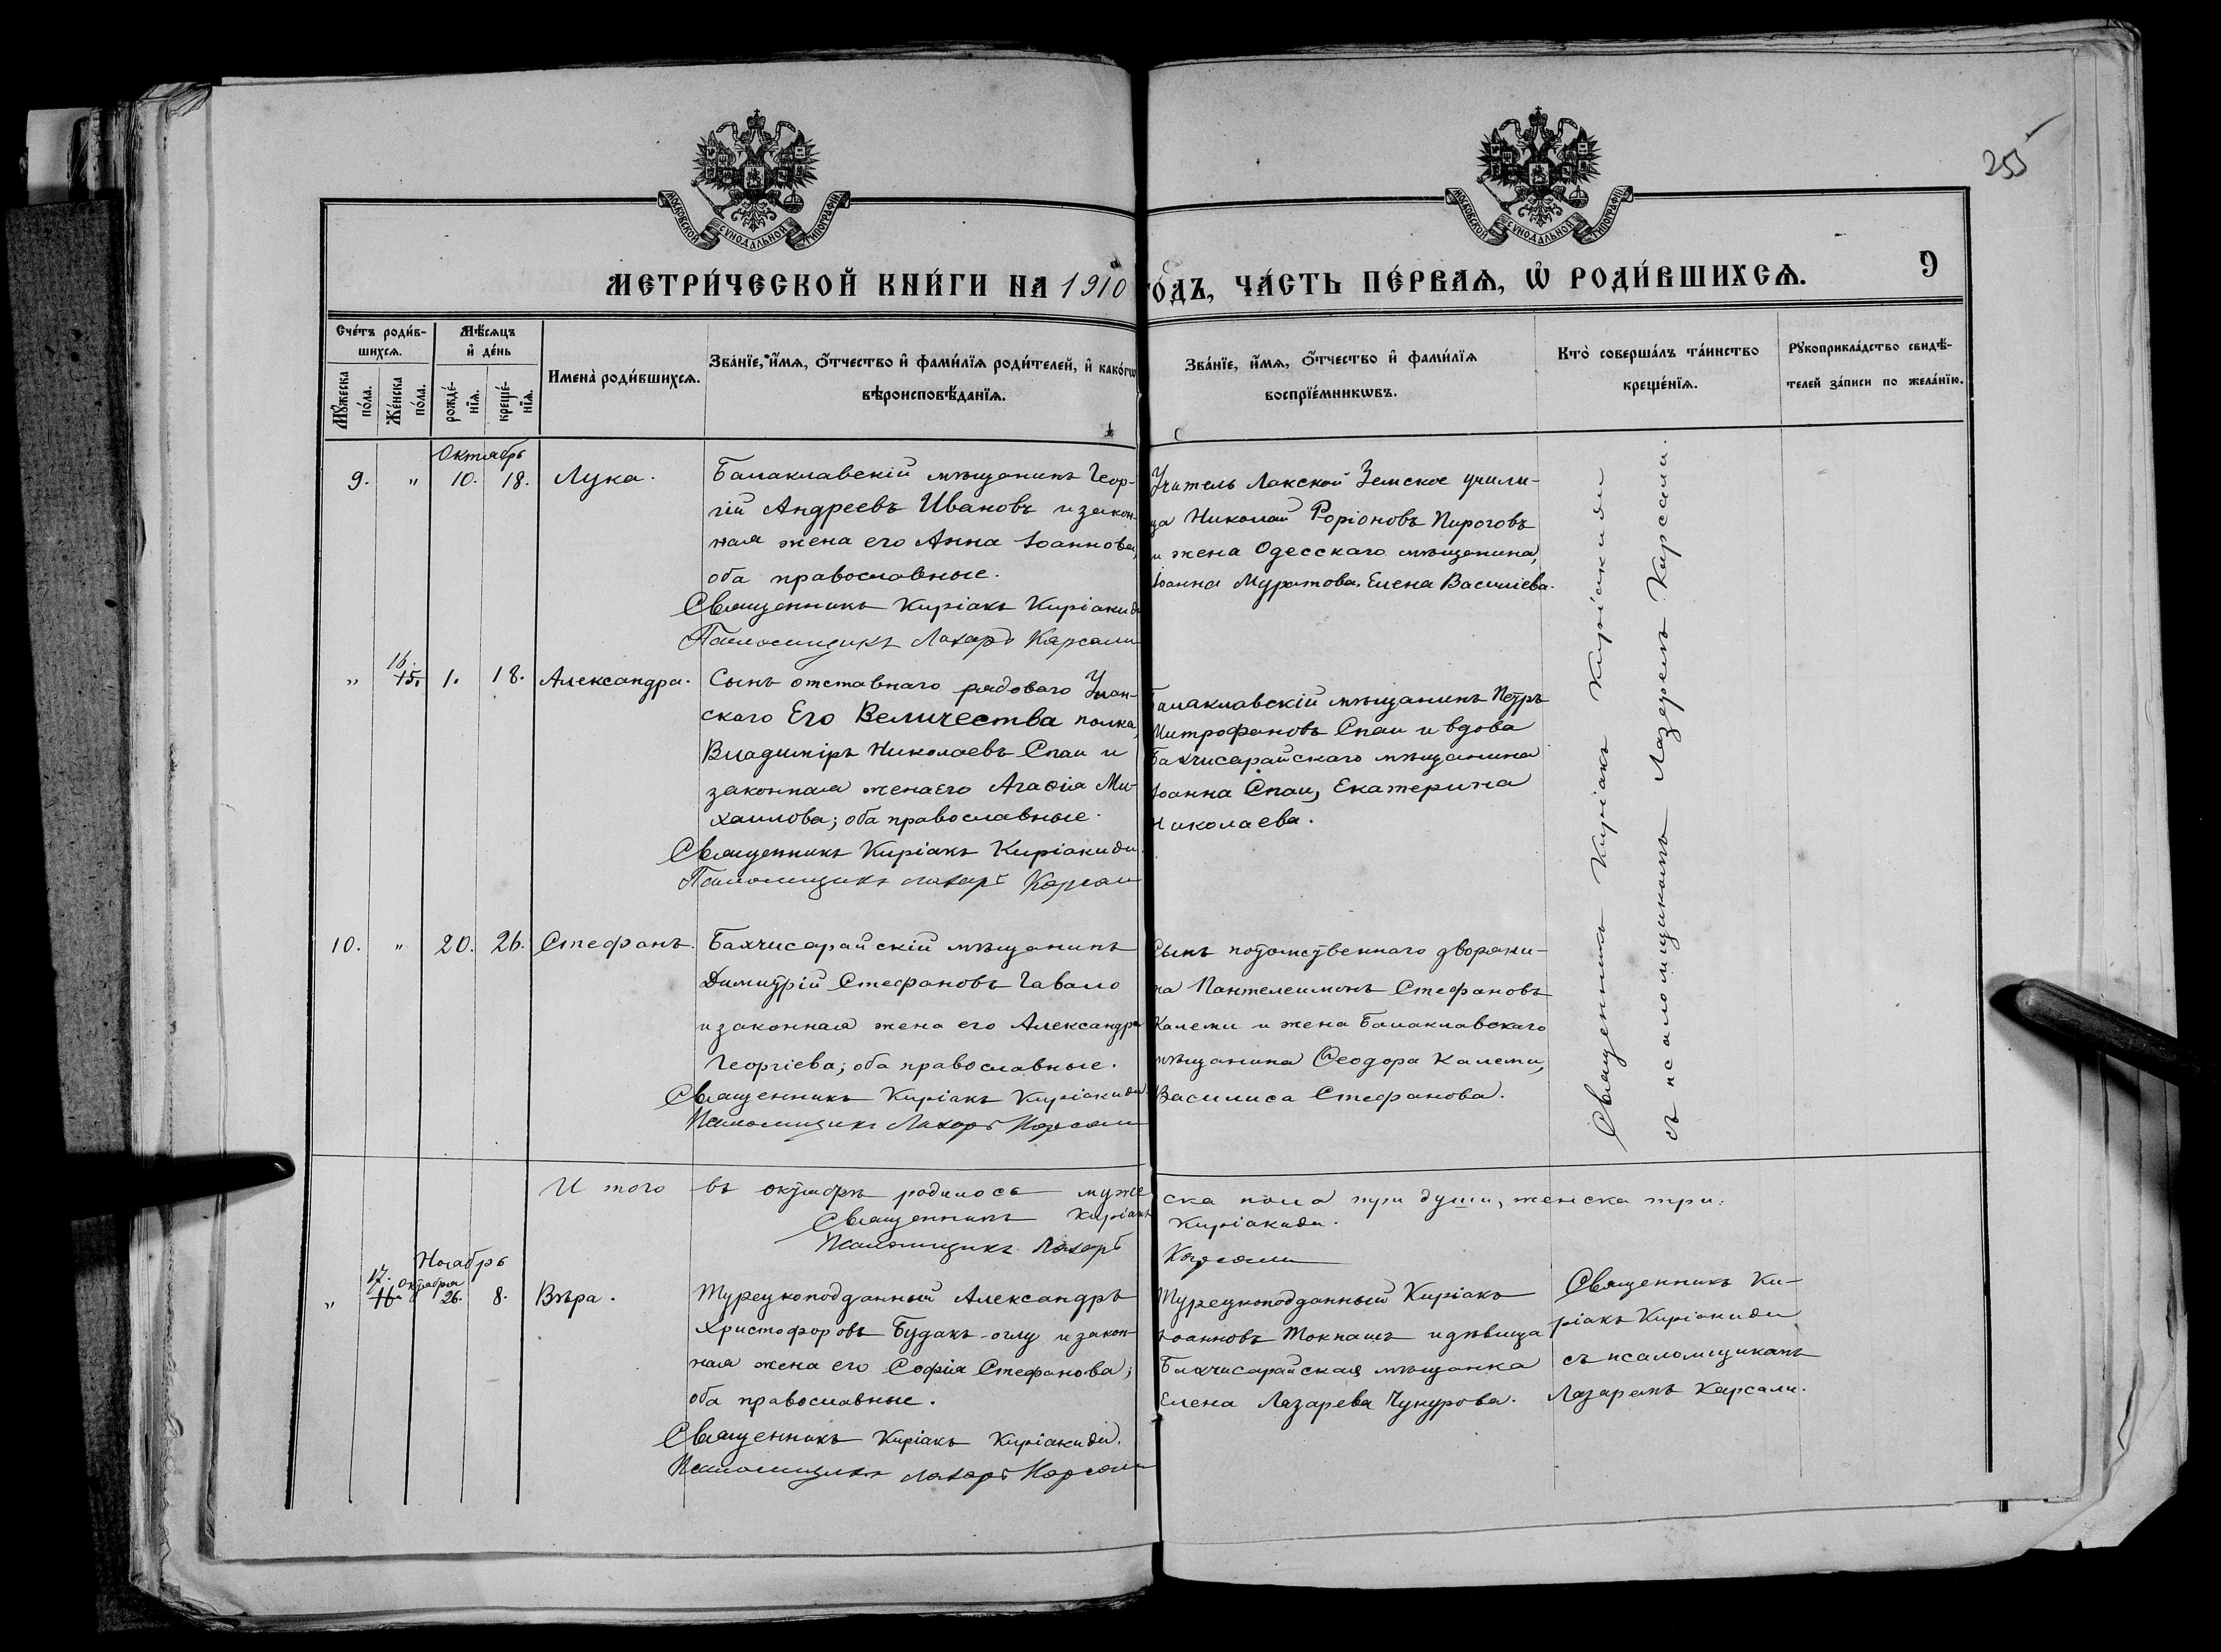 255
МОСКОВСКОЙ СУНОДАЛЬНОЙ ТИПОГРАФІИ
МОСКОВСКОЙ СУНОДАЛЬНОЙ ТИПОГРАФІИ
МЕТРИ́ЧЕСКОЙ КНИ́ГИ НА 1910 ГО́ДЪ, ЧА́СТЬ ПЕ́РВАЯ, Ѡ РОДИ́ВШИХСЯ.
9
Сче́тъ роди́в-
шихся.
Мꙋ́жеска
по́ла.
Же́нска
по́ла.
Мѣ́сяцъ
и де́нь
рожде́-
нїя.
креще́-
нїя.
Имена̀ роди́вшихся.
Зва́нїе, и́мя, о́тчество и фами́лїя роди́телей, и како́гѡ
вѣроисповѣ́данїя.
Зва́нїе, и́мя, о́тчество и фами́лїя
воспрїе́мникѡвъ.
Кто̀ соверша́лъ та́инство
креще́нїя.
Рꙋкоприкла́дство свидѣ́-
телей за́писи по жела́нїю.
Октябрь
9. " 10. 18. Лука.
Балаклавскій мѣщанинъ Геор-
гій Андреевъ Ивановъ и закон-
ная жена его Анна Іоаннова,
оба православные.
Священникъ Киріакъ Киріакиди
Псаломщикъ Лазарь Карсали
Учитель Лакской Земское учили-
ща Николай Роріоновъ Пироговъ
и жена Одесскаго мѣщанина,
Іоанна Муратова, Елена Василіева.
" 16. 15. 1. 18. Александра.
Сынъ отставнаго рядоваго Улан-
скаго Его Величества полка,
Владиміръ Николаевъ Спаи и
законная жена его Агаѳія Ми-
хаилова; оба православные.
Священникъ Киріакъ Киріакиди.
Псаломщикъ Лазарь Карсали
Балаклавскій мѣщанинъ Петръ
Митрофановъ Спаи и вдова
Бахчисарайскаго мѣщанина
Іоанна Спаи, Екатерина
Николаева.
10. " 20. 26. Стефанъ.
Бахчисарайскій мѣщанинъ
Димитрій Стефановъ Гавало
и законная жена его Александра
Георгіева; оба православные.
Священникъ Киріакъ Киріакиди
Псаломщикъ Лазарь Карсали
Сынъ потомственнаго дворяни-
на Пантелеимонъ Стефановъ
Калеми и жена Балаклавскаго
мѣщанина Ѳеодора Калеми,
Василиса Стефанова.
Священникъ Киріакъ Киріакиди
съ псаломщикомъ Лазаремъ Карсали.
Итого въ октябрѣ родилось мужеска пола три души, женска три.
Священникъ Киріакъ Киріакиди.
Псаломщикъ Лазарь Карсали
Ноябрь
" 17. 16. октября 26. 8. Вѣра.
Турецкоподданный Александръ
Христофоровъ Будакъ-оглу и закон-
ная жена его Софія Стефанова;
оба православные.
Священникъ Киріакъ Киріакиди.
Псаломщикъ Лазарь Карсали
Турецкоподданный Киріакъ
Іоанновъ Токмашъ и дѣвица
Бахчисарайская мѣщанка
Елена Лазарева Чукурова.
Священникъ Ки-
ріакъ Киріакиди
съ псаломщикомъ
Лазаремъ Карсали.